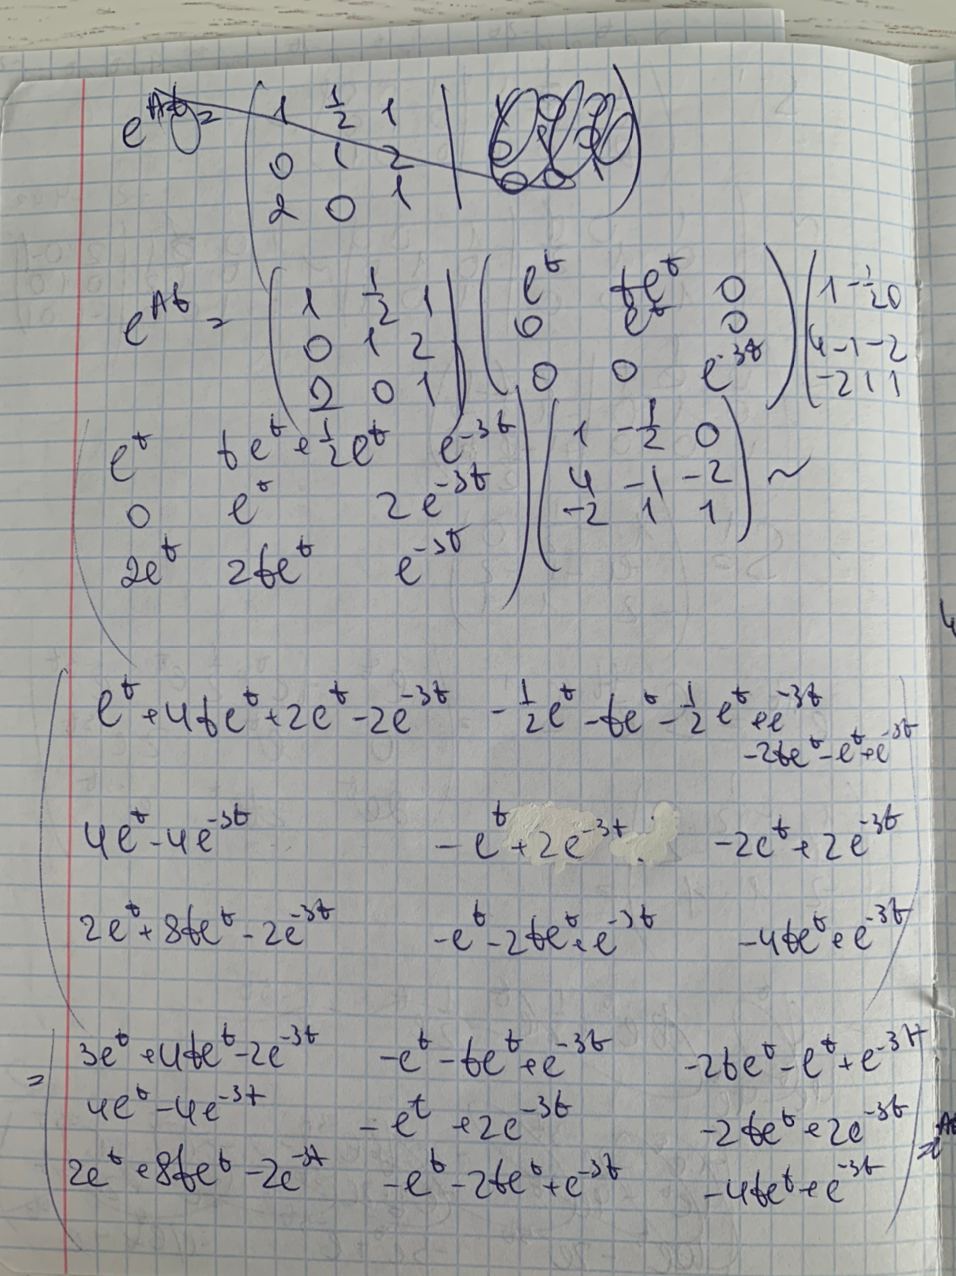 e^{At} = ( 1 1/2 1 |
0 1 2
2 0 1 )
e^{At} = ( 1 1/2 1 ) ( e^t te^t 0 ) ( 1 -1/2 0
0 1 2 0 e^t 0 4 -1 -2
2 0 1 0 0 e^{-3t} -2 1 1
e^t te^t + 1/2 e^t e^{-3t} ) ( 1 -1/2 0 ) ~
0 e^t 2e^{-3t} 4 -1 -2
2e^t 2te^t e^{-3t} -2 1 1
e^t + 4te^t + 2e^t - 2e^{-3t} -1/2 e^t - te^t - 1/2 e^t + e^{-3t}
-2te^t - e^t + e^{-3t}
4e^t - 4e^{-3t} -e^t + 2e^{-3t} -2e^t + 2e^{-3t}
2e^t + 8te^t - 2e^{-3t} -e^t - 2te^t + e^{-3t} -4te^t + e^{-3t}
3e^t + 4te^t - 2e^{-3t} -e^t - te^t + e^{-3t} -2te^t - e^t + e^{-3t}
= 4e^t - 4e^{-3t} -e^t + 2e^{-3t} -2te^t + 2e^{-3t} =
2e^t + 8te^t - 2e^{-3t} -e^t - 2te^t + e^{-3t} -4te^t + e^{-3t}